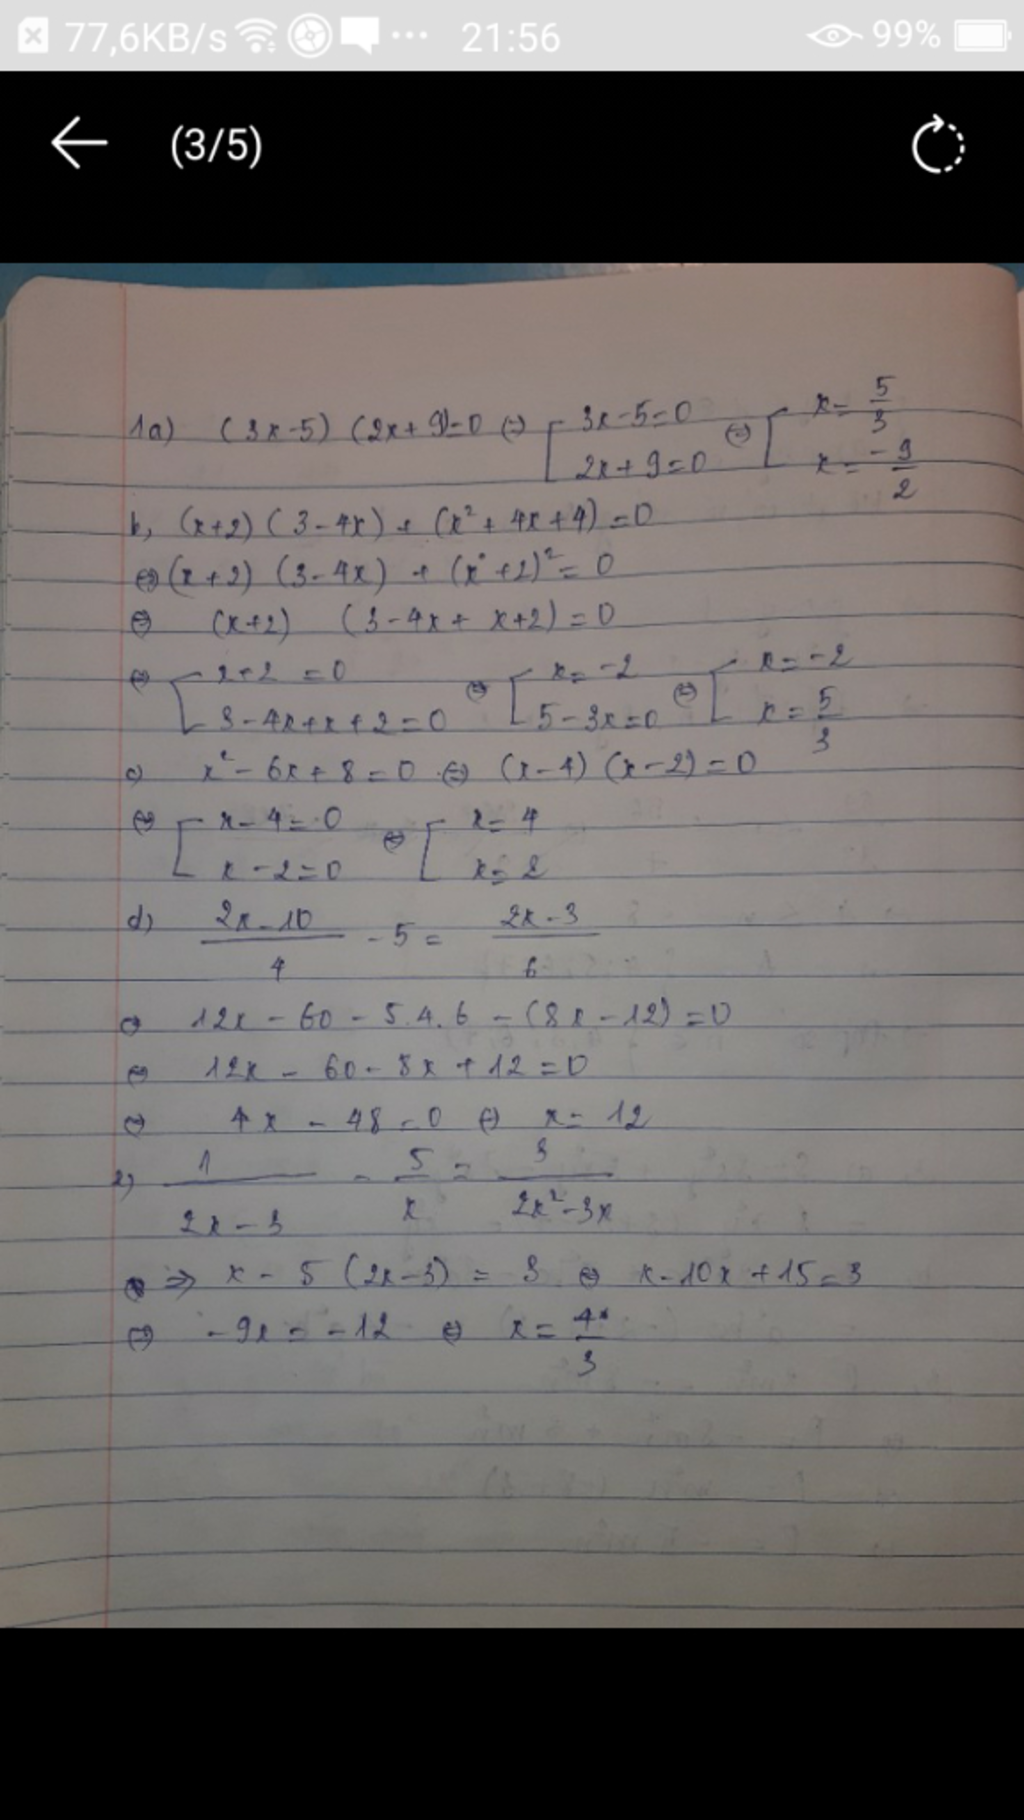 77,6KB/s ... 21:56 99%
(3/5)
1a) (3x-5) (2x+9)=0 ⇔ [ 3x-5=0 ; 2x+9=0 ⇔ [ x= 5/3 ; x= -9/2
b, (x+2) (3-4x) + (x² + 4x+4) =0
⇔ (x+2) (3-4x) + (x+2)² = 0
⇔ (x+2) (3-4x + x+2) = 0
⇔ [ x+2 =0 ; 3-4x+x+2=0 ⇔ [ x= -2 ; 5-3x=0 ⇔ [ x= -2 ; x= 5/3
c) x² - 6x + 8 = 0 ⇔ (x-4) (x-2) = 0
⇔ [ x-4=0 ; x-2=0 ⇔ [ x= 4 ; x= 2
d) (2x-10)/4 - 5 = (2x-3)/6
⇔ 12x - 60 - 5.4.6 - (8x-12) =0
⇔ 12x - 60 - 8x + 12 =0
⇔ 4x - 48 =0 ⇔ x= 12
e) 1/(2x-3) - 5/x = 3/(2x²-3x)
⇒ x - 5 (2x-3) = 3 ⇔ x-10x+15=3
⇔ -9x = -12 ⇔ x = 4/3